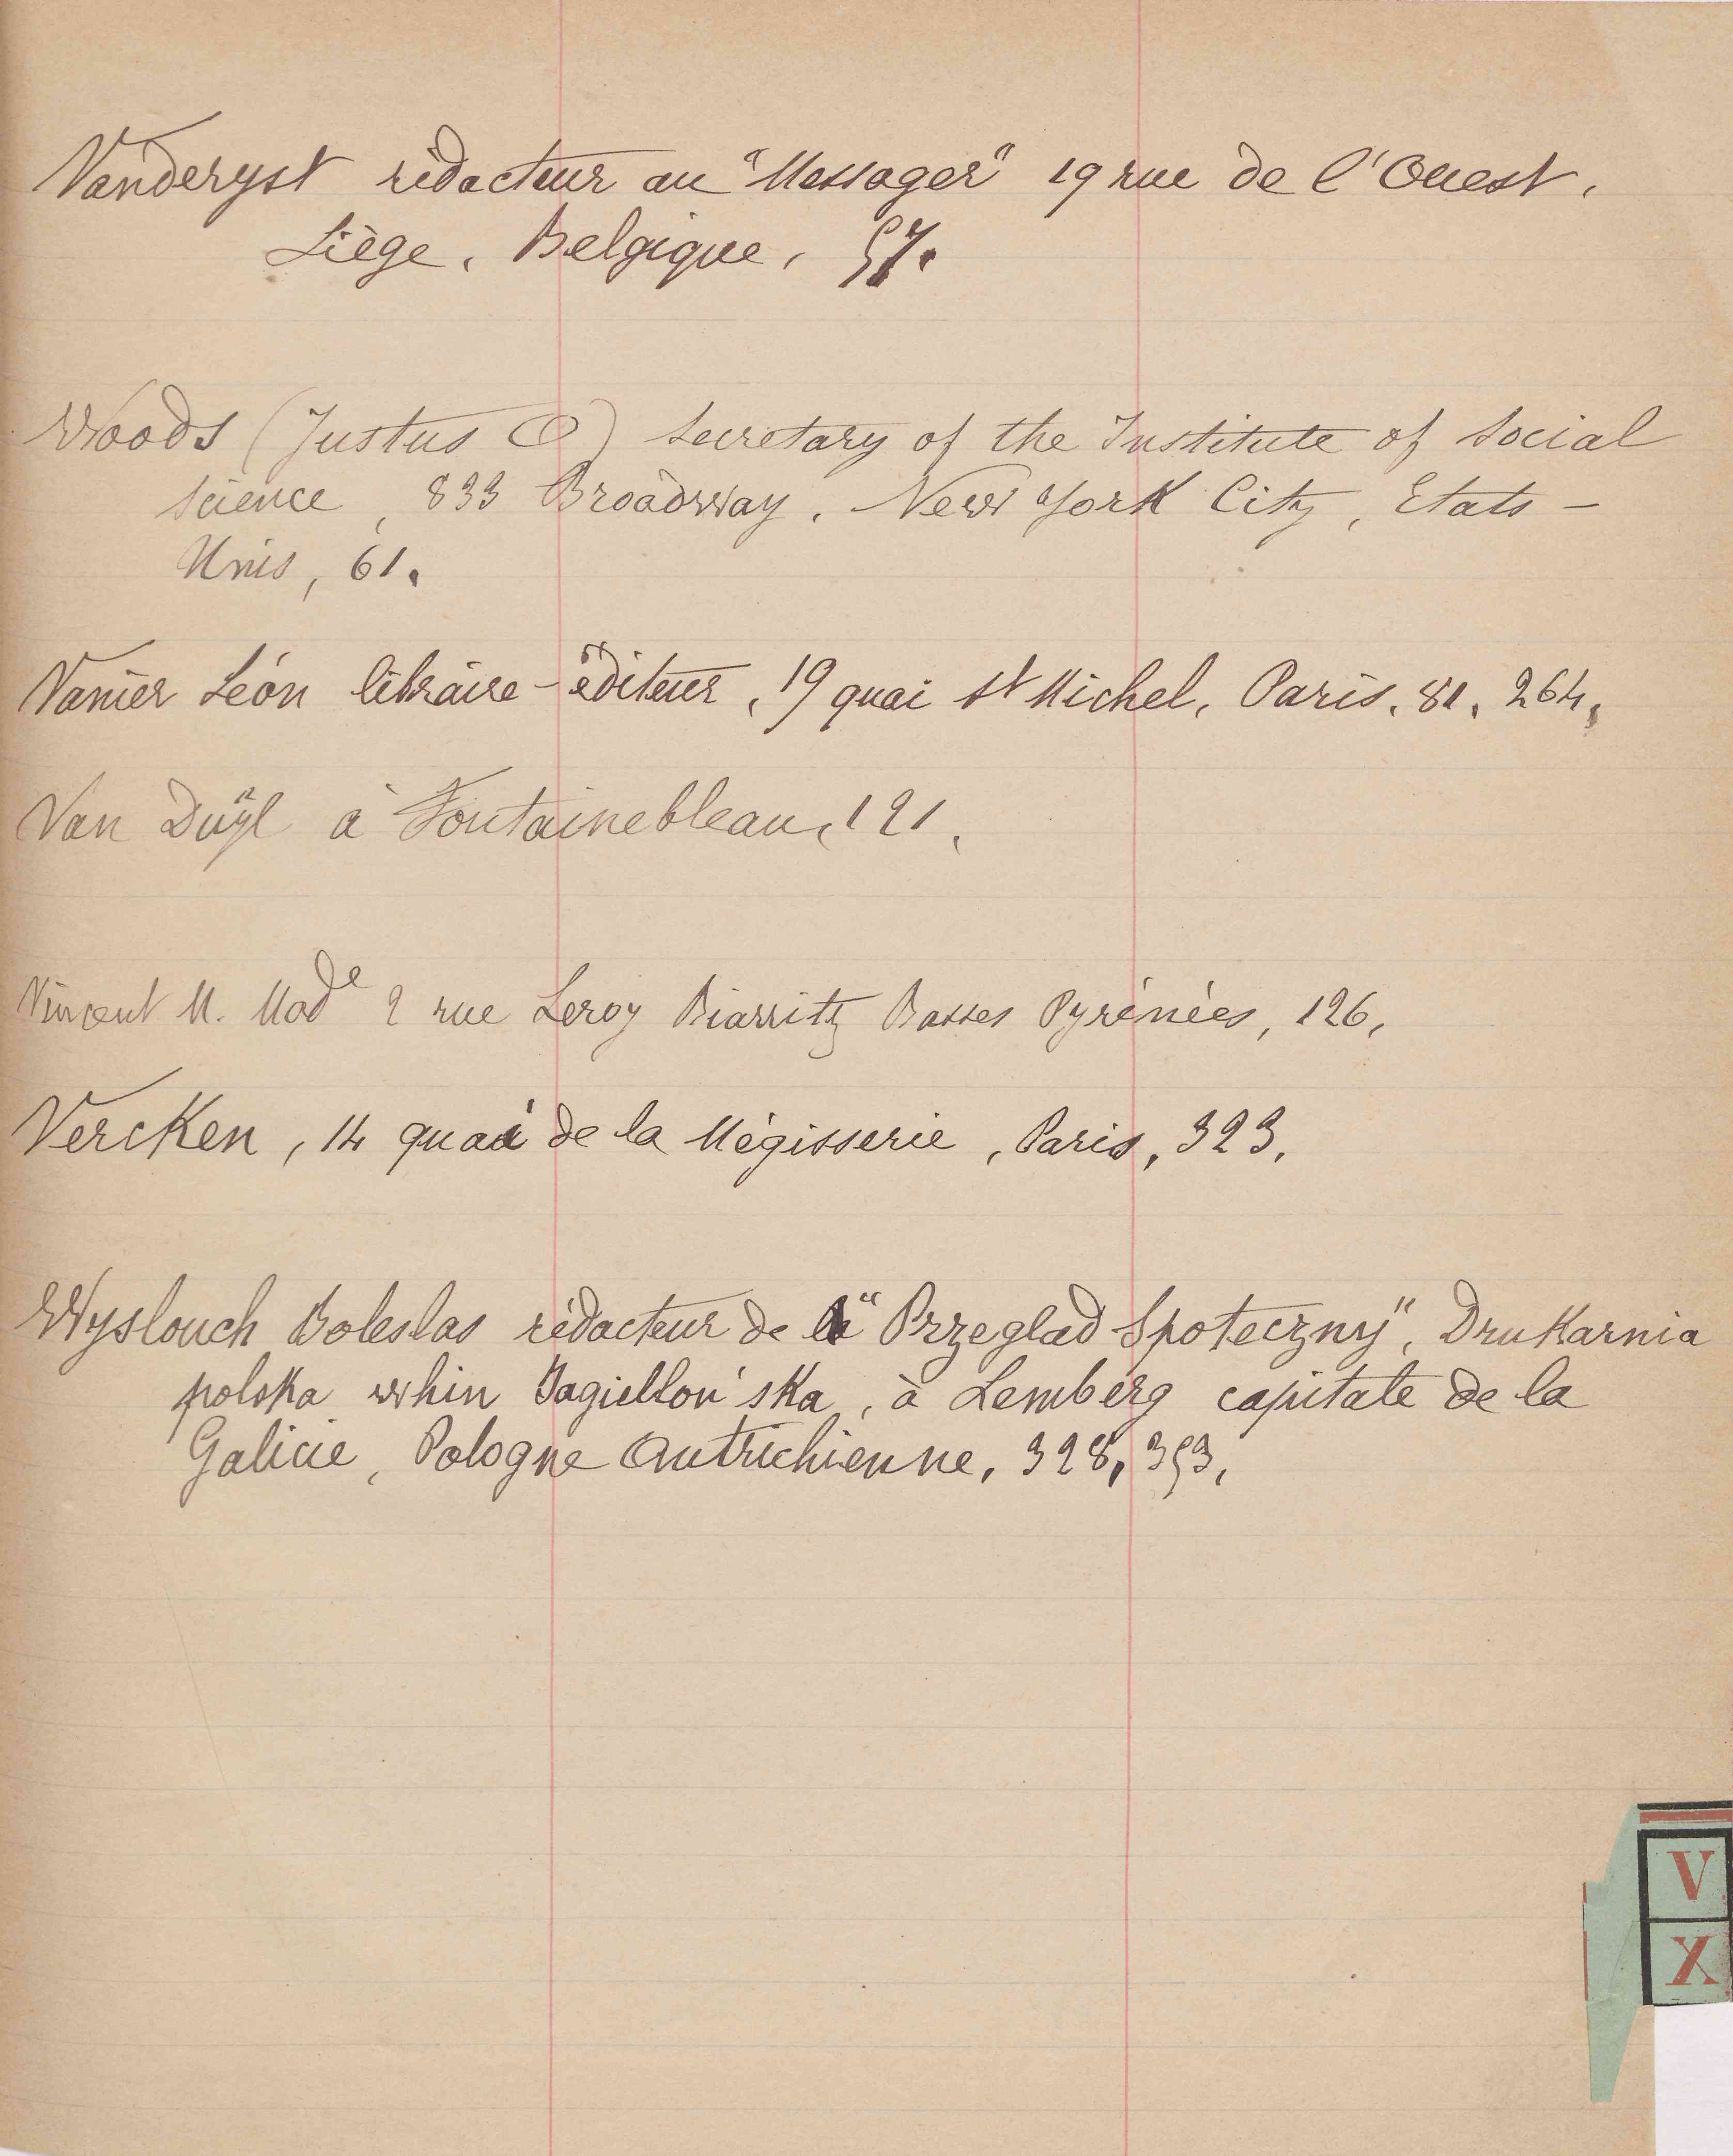 Vanderyst rédacteur au "Messager" 19 rue de l'Ouest,
Liège, Belgique, 57.
Woods (Justus O) Secretary of the Institute of Social
Science, 833 Broadway, New York City, Etats-
Unis, 61.
Vanier Léon libraire-éditeur, 19 quai St Michel, Paris, 81, 264,
Van Duÿl à Fontainebleau, 121,
Vincent M. Made 2 rue Leroy Biarritz Basses Pyrénées, 126,
Vercken, 14 quai de la Mégisserie, Paris, 323,
Wyslouch Boleslas rédacteur de la "Przeglad Spoteczny", Drukarnia
polska whin Jagiellon'ska, à Lemberg capitale de la
Galicie, Pologne Autrichienne, 328, 353,
V
X